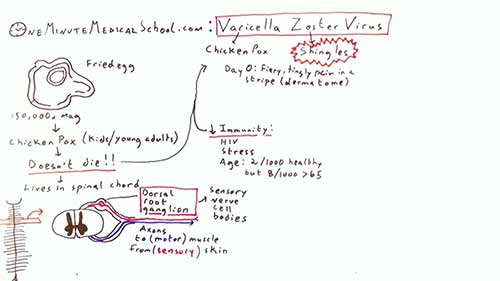 OneMinuteMedicalSchool.com: Varicella Zoster Virus
Chicken Pox
Shingles
Day 0: Fiery, tingly pain in a
stripe (dermatome)
Fried egg
150,000x mag
Chicken Pox (Kids/young adults)
Doesn't die!!
Lives in spinal chord
↓ Immunity:
HIV
Stress
Age: 2/1000 healthy
but 8/1000 >65
Dorsal
root
ganglion
Sensory
nerve
cell
bodies
Axons
to (motor) muscle
from (sensory) skin